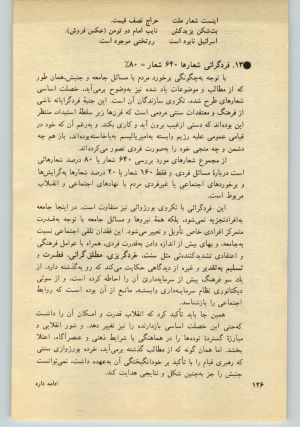 اینست شعار ملت حراج نصف قیمت.
بت‌شکن بزیدکش نایب امام دو تومن (عکس فروش).
اسرائیل نابود است روتختی موجود است.
●۱۳. فردگرائی شعارها ۶۴۰ شعار = ۸۰٪
با توجه به‌چگونگی برخورد مردم با مسائل جامعه و جنبش، همان طور
که از مطالب و موضوعات یاد شده نیز به‌وضوح برمی‌آید، خصلت اساسی
شعارهای طرح شده، تکروی سازندگان آن است. این جنبهٔ فردگرایانه ناشی
از فرهنگ و معتقدات سنتی مردمی است که قرن‌ها زیر سلطهٔ استبداد، منتظر
این بوده‌اند که دستی ازغیب برون آید و کاری بکند. و به‌رغم آن که خود در
قیامی عمومی علیه رژیم وابسته به‌امپریالیسم به‌پاخاسته‌بوده‌اند، باز هم چه
دشمن و چه منجی خود را به‌صورت فردی تصور می‌کرده‌اند.
از مجموع شعارهای مورد بررسی ۶۴۰ شعار یا ۸۰ درصد شعارهائی
است دربارهٔ مسائل فردی. و فقط ۱۶۰ شعار یا ۲۰ درصد شعارها به‌گرایش‌ها
و برخوردهای اجتماعی یا غیرفردی مردم با نهادهای اجتماعی و انقلاب
مربوط است.
این فردگرائی با تکروی بورژوائی نیز متفاوت است. در اینجا جامعه
به‌افرادتجزیه نمی‌شود، بلکه همهٔ نیروها و مسائل جامعه با توجه به‌قدرت
متمرکز افرادی خاص تأویل و تعبیر می‌شود. این فقدان تلقی اجتماعی نسبت
به‌جامعه، و بهای بیش از اندازه دادن به‌قدرت فردی، همراه با عوامل فرهنگی
و اعتقادی تشدیدکننده‌ئی مثل سنت، خردگریزی، مطلق‌گرائی، فطرت و
تسلیم به‌تقدیر و غیره از دیدگاهی حکایت می‌کند که رو به‌گذشته دارد. از
یک سو فرهنگ پیش از سرمایه‌داری آن را احاطه کرده است، و از سوئی
دیکتاتوری نظام سرمایه‌داری وابسته، مانع از آن بوده است که روابط
اجتماعی را بازشناسد.
همین جا باید تأکید کرد که انقلاب قدرت و امکان آن را داشت
که‌حتی این خصلت اساسی بازدارنده را نیز تغییر دهد. و شور انقلابی و
مبارزهٔ گستردهٔ توده‌ها را در هماهنگی با شرایط ذهنی و عنصرآگاه، اعتلا
بخشد. اما همان گونه که از مطالب گذشته برمی‌آید، خرده بورژوازی سنتی
که رهبری قیام را با تأکید بر خودانگیختگی آن به‌عهده داشت، نمی‌توانست
جنبش را جز به‌چنین شکل و نتایجی هدایت کند.
ادامه دارد
۱۲۶